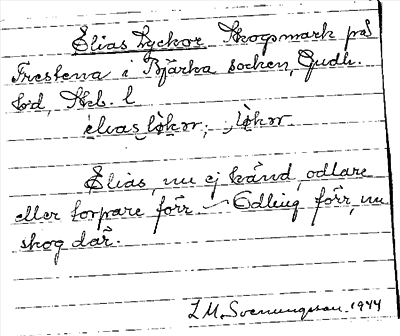 Elias Lyckor Skogsmark på
Frestena i Bjärka socken, Gudh.
hd, Skb. l
elias lykor, lykor
Elias, nu ej känd, odlare
eller torpare förr — Odling förr, nu
skog där.
L. M. Svenungsson 1944